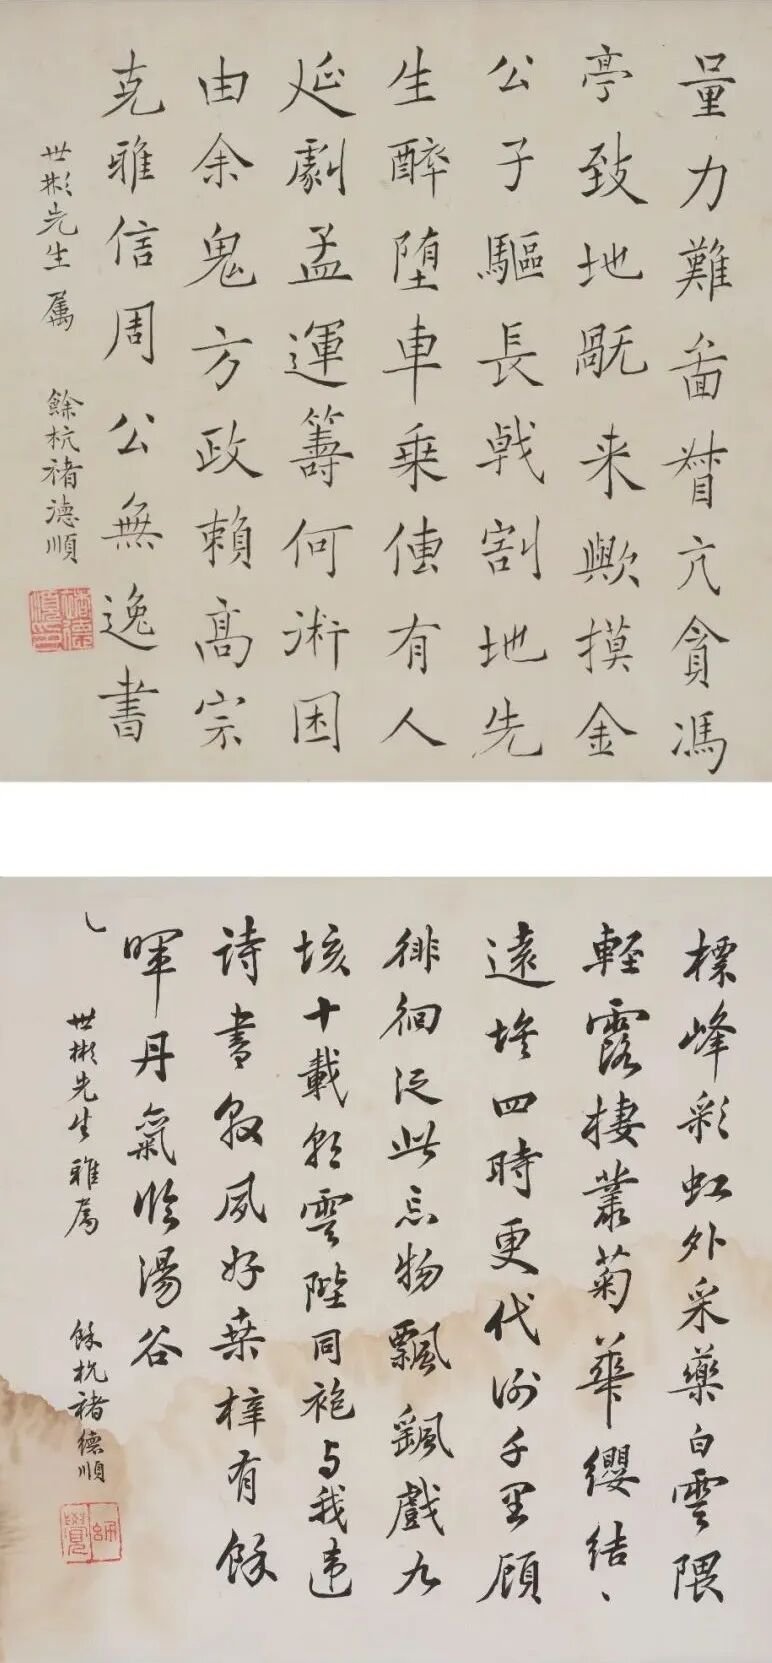 量力難啚贊亢貪馮
亭致地厩来歟摸金
公子驅長戟割地先
生醉堕車乗傳有人
延劇孟運籌何術困
由余鬼方政賴高宗
克雅信周公無逸書
世彬先生属 餘杭褚德順
標峰彩虹外采藥白雲隈
輕露棲叢菊華纓結、
遠埃四時更代謝千里顧
徘徊泛此忘物飄颻戲九
垓十載彩雲陛同袍与我違
詩書敦夙好桒梓有餘
暉丹氣臨湯谷
世彬先生雅属 餘杭褚德順